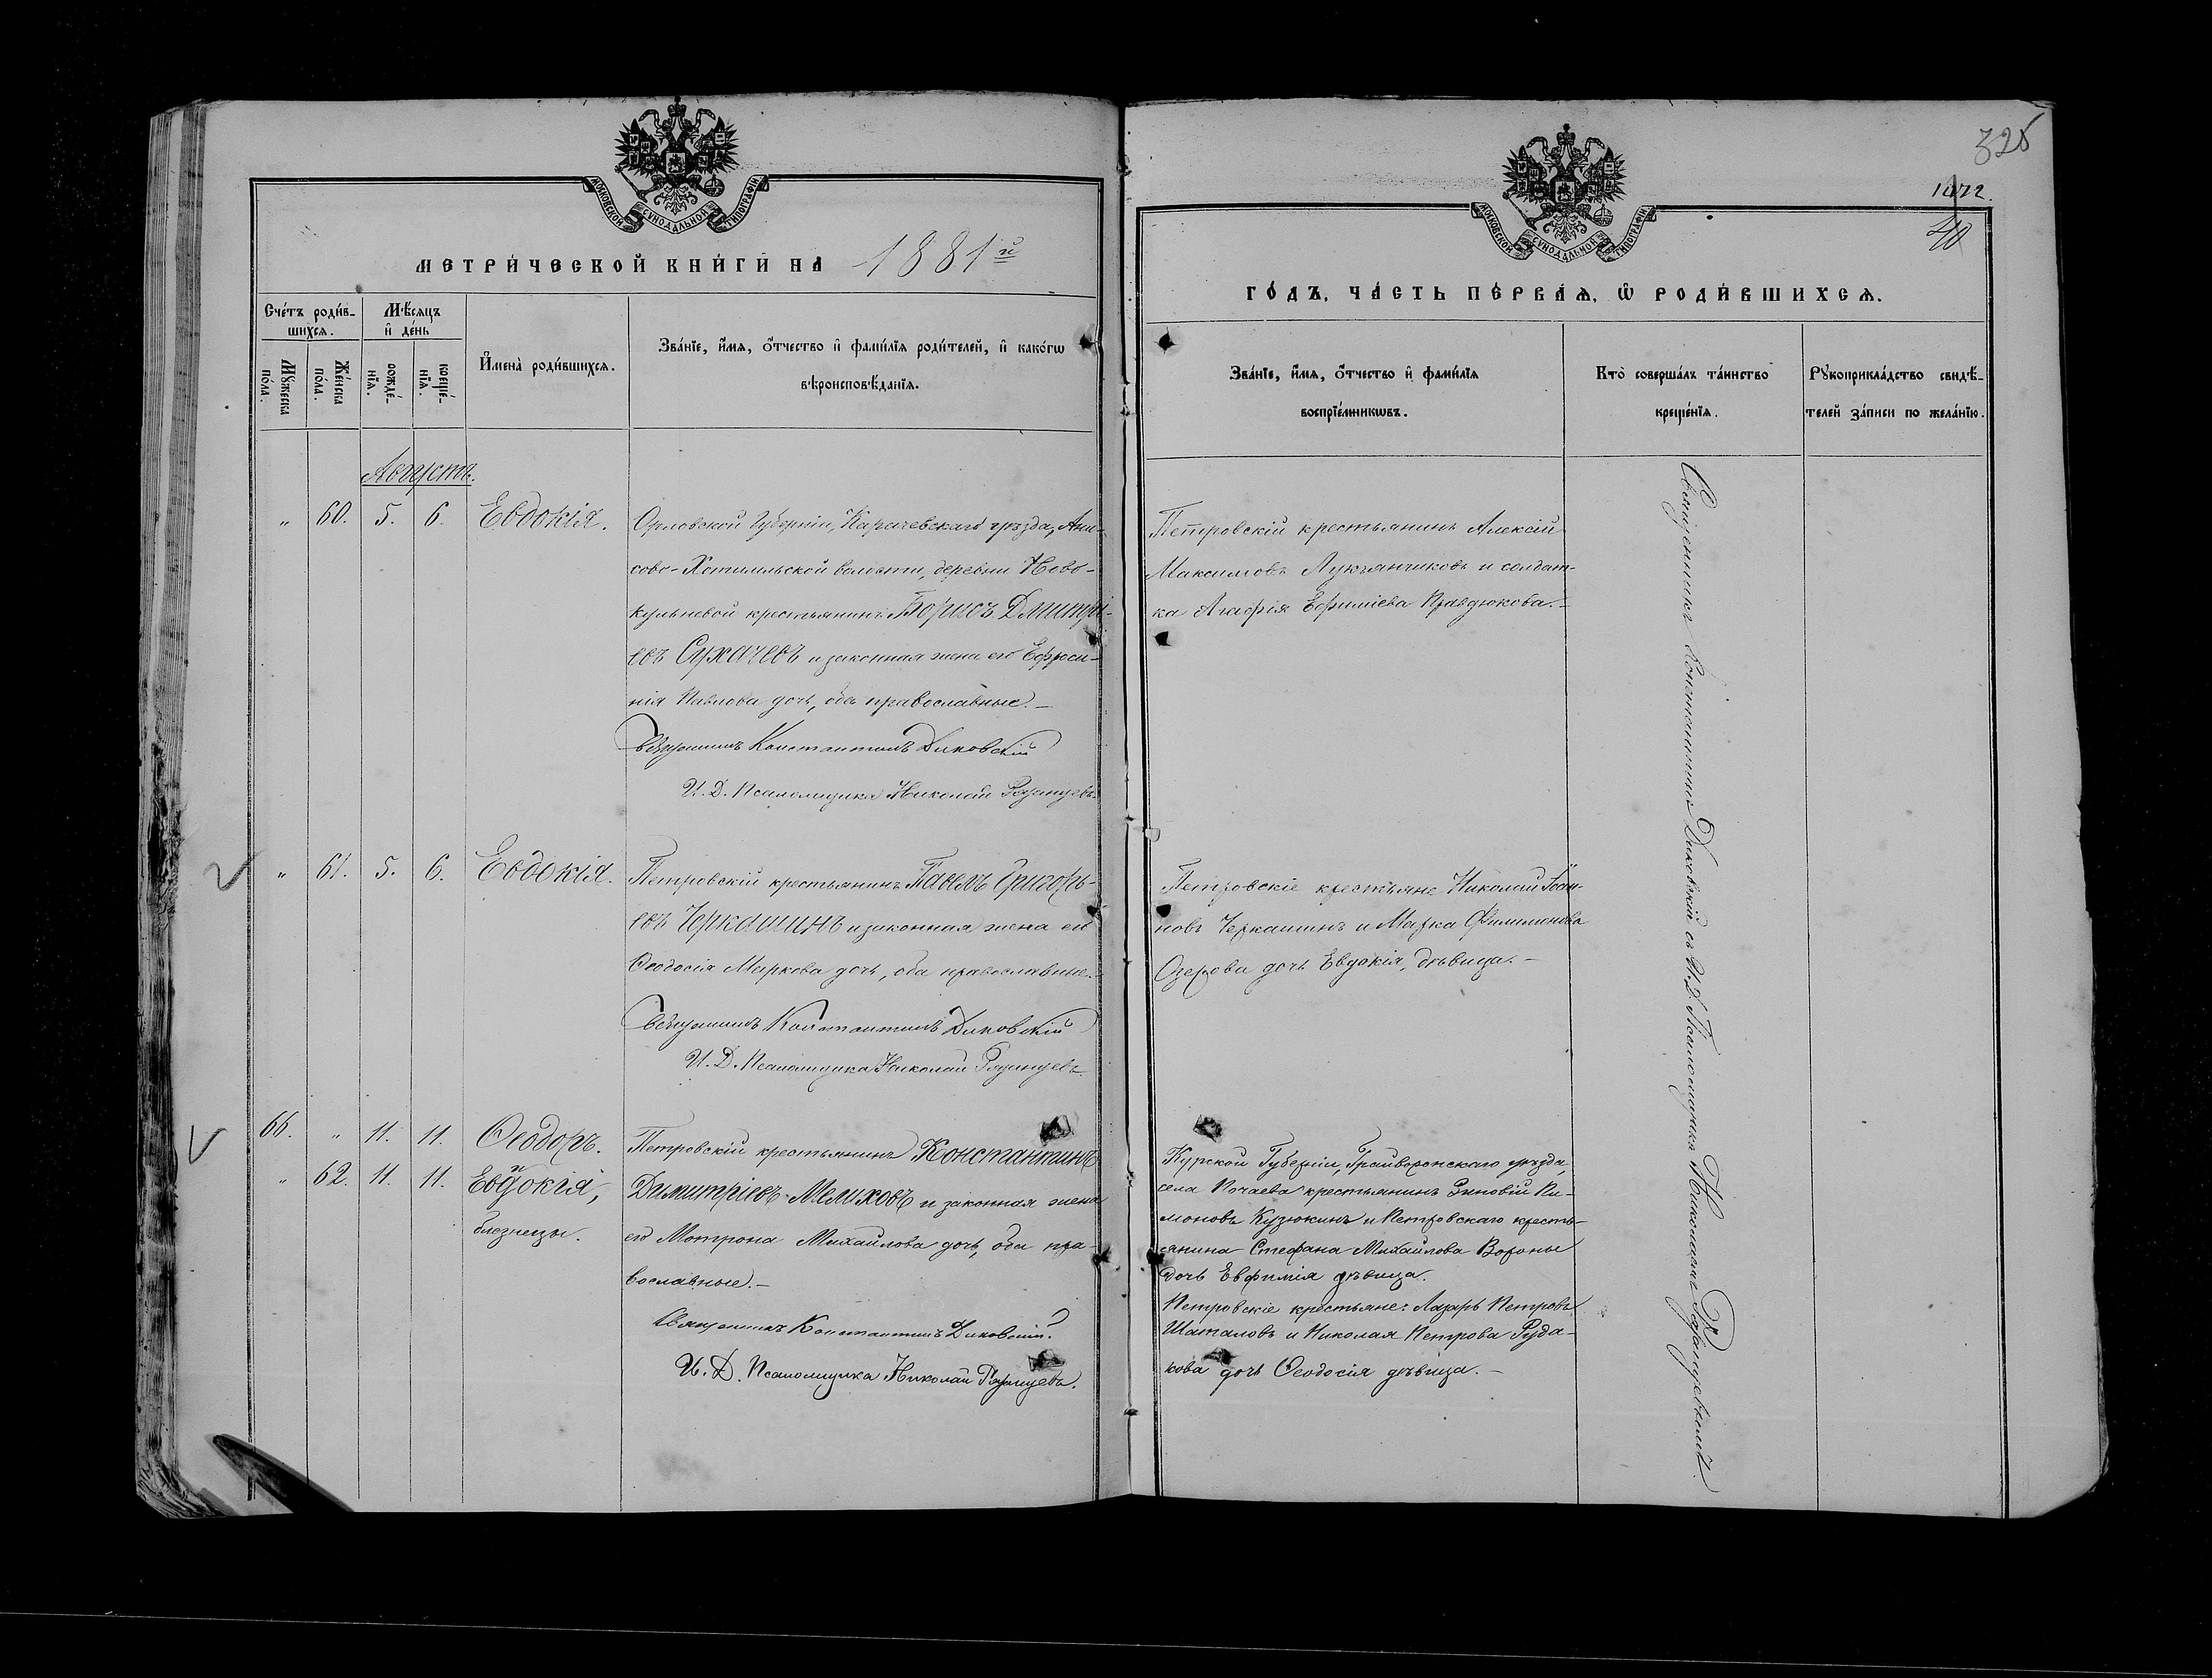 МОСКОВСКОЙ СѴНОДАЛЬНОЙ ТИПОГРАФІИ
МЕТРИ́ЧЕСКОЙ КНИ́ГИ НА 1881й
Сче́тъ роди́в-
шихся.
Мѣ́сяцъ
и҆ де́нь
Мꙋ́жеска
по́ла.
Же́нска
по́ла.
рожде́-
нїя.
креще́-
нїя.
И҆мена̀ роди́вшихся.
Зва́нїе, и҆́мя, о҆́тчество и҆ фами́лїя роди́телей, и҆ како́гѡ
вѣроисповѣ́данїя.
Августъ.
„ 60. 5. 6. Евдокія.
Орловской Губерніи, Карачевскаго уѣзда, Ани-
сово-Хотимльской волости, деревни Ново-
кульневой крестьянинъ Борисъ Дмитрі-
евъ Сухачевъ и законная жена его Ефроси-
нія Павлова дочь, оба православные. –
Священникъ Константинъ Диковскій
И. Д. Псаломщика Николай Рязанцевъ.
„ 61. 5. 6. Евдокія.
Петровскій крестьянинъ Павелъ Григорь-
евъ Черкашинъ и законная жена его
Ѳеодосія Маркова дочь, оба православные. –
Священникъ Константинъ Диковскій
И. Д. Псаломщика Николай Рязанцевъ.
66. „ 11. 11. Ѳеодоръ.
и
„ 62. 11. 11. Евдокія,
близнецы.
Петровскій крестьянинъ Константинъ
Димитріевъ Мелиховъ и законная жена
его Мотрона Михайлова дочь, оба пра-
вославные. –
Священникъ Константинъ Диковскій.
И. Д. Псаломщика Николай Рязанцевъ.
325
1072.
40
МОСКОВСКОЙ СѴНОДАЛЬНОЙ ТИПОГРАФІИ
ГО́ДЪ, ЧА́СТЬ ПЕ́РВАЯ, Ѡ҆ РОДИ́ВШИХСЯ.
Зва́нїе, и҆́мя, о҆́тчество и҆ фами́лїя
воспрїе́мникѡвъ.
Кто̀ соверша́лъ та́инство
креще́нїя.
Рꙋкоприкла́дство свидѣ́-
телей за́писи по жела́нїю.
Петровскій крестьянинъ Алексій
Максимовъ Лукьянчиковъ и солдат-
ка Агафія Ефиміева Правдюкова. –
Петровскіе крестьяне Николай Іоан-
новъ Черкашинъ и Марка Филимонова
Озерова дочь Евдокія, дѣвица. –
Курской Губерніи, Грайворонскаго уѣзда,
села Почаева крестьянинъ Зиновій Пи-
моновъ Кузюкинъ и Петровскаго кресть-
янина Стефана Михайлова Вороны
дочь Евфимія дѣвица.
Петровскіе крестьяне: Лазарь Петровъ
Шаталовъ и Николая Петрова Руда-
кова дочь Ѳеодосія дѣвица. –
Священникъ Константинъ Диковскій съ И. Д. Псаломщика Николаемъ Рязанцевымъ.